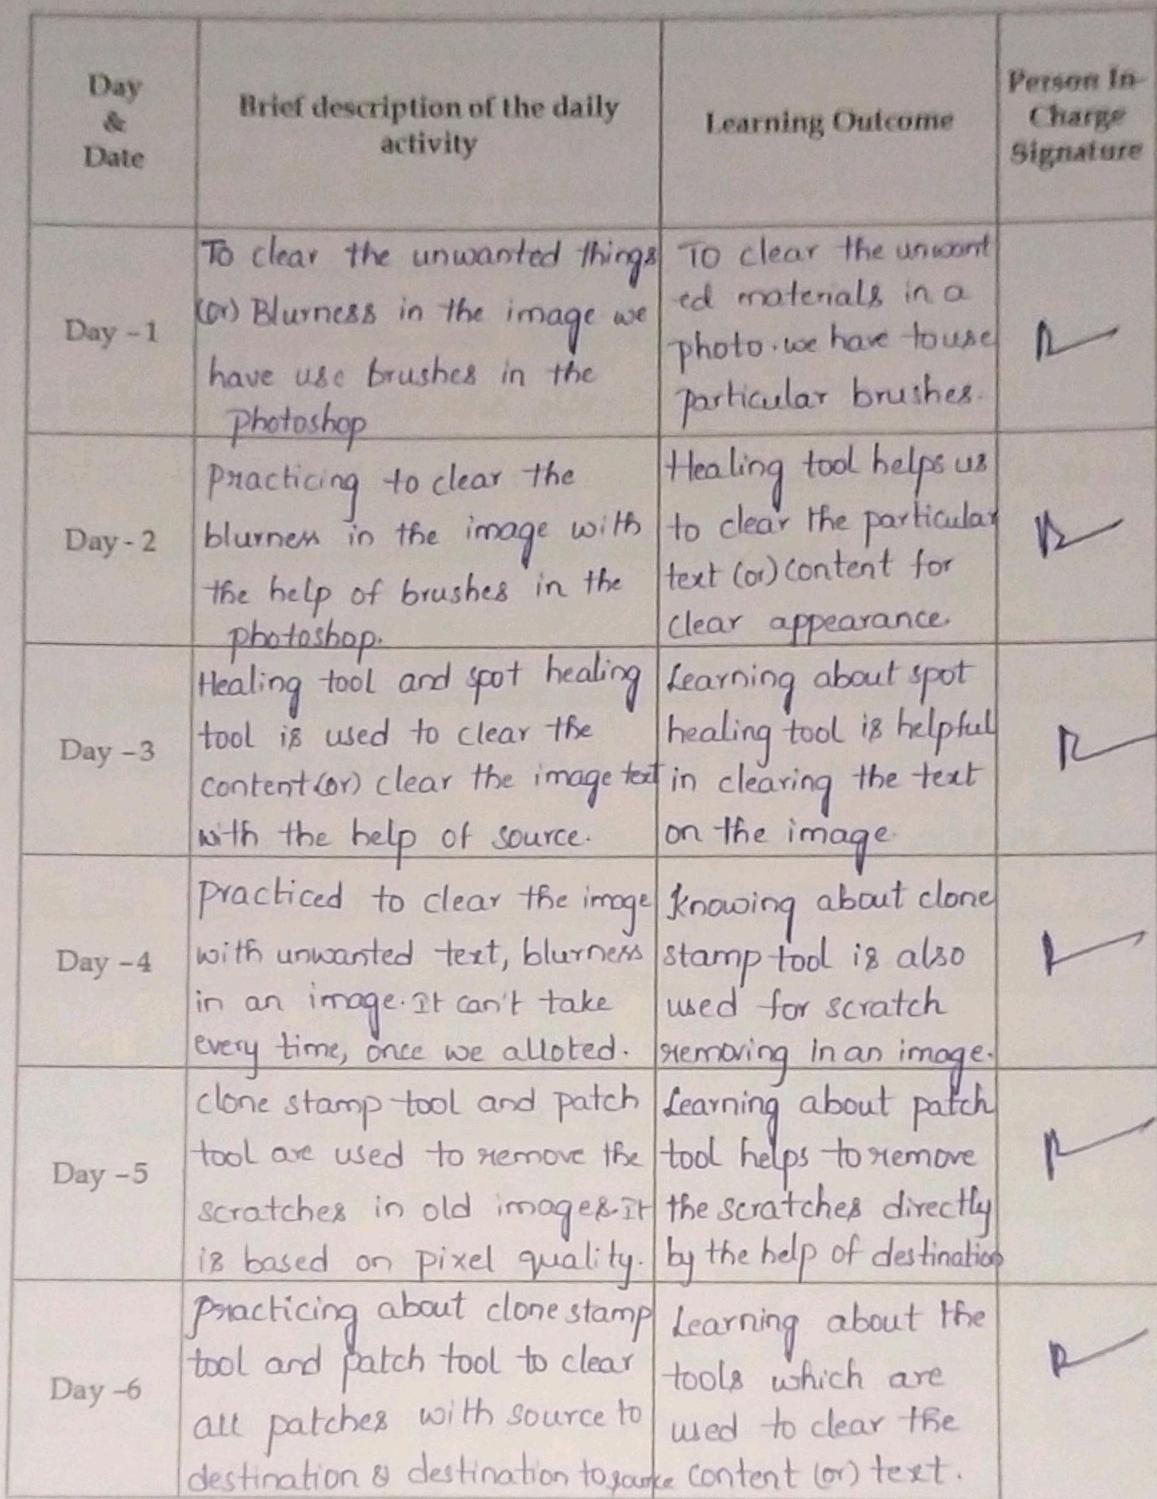 Day
&
Date
Brief description of the daily
activity
Learning Outcome
Person In-
Charge
Signature
Day - 1
To clear the unwanted things
(or) Blurness in the image we
have use brushes in the
photoshop
To clear the unwant
ed materials in a
photo. we have to use
particular brushes.
Day - 2
practicing to clear the
blurness in the image with
the help of brushes in the
photoshop.
Healing tool helps us
to clear the particular
text (or) content for
clear appearance.
Day - 3
Healing tool and spot healing
tool is used to clear the
content (or) clear the image text
with the help of source.
Learning about spot
healing tool is helpful
in clearing the text
on the image.
Day - 4
practiced to clear the image
with unwanted text, blurness
in an image. It can't take
every time, once we alloted.
knowing about clone
stamp tool is also
used for scratch
removing in an image.
Day - 5
clone stamp tool and patch
tool are used to remove the
scratches in old images. It
is based on pixel quality.
Learning about patch
tool helps to remove
the scratches directly
by the help of destination
Day -6
practicing about clone stamp
tool and patch tool to clear
all patches with source to
destination & destination to source
Learning about the
tools which are
used to clear the
content (or) text.